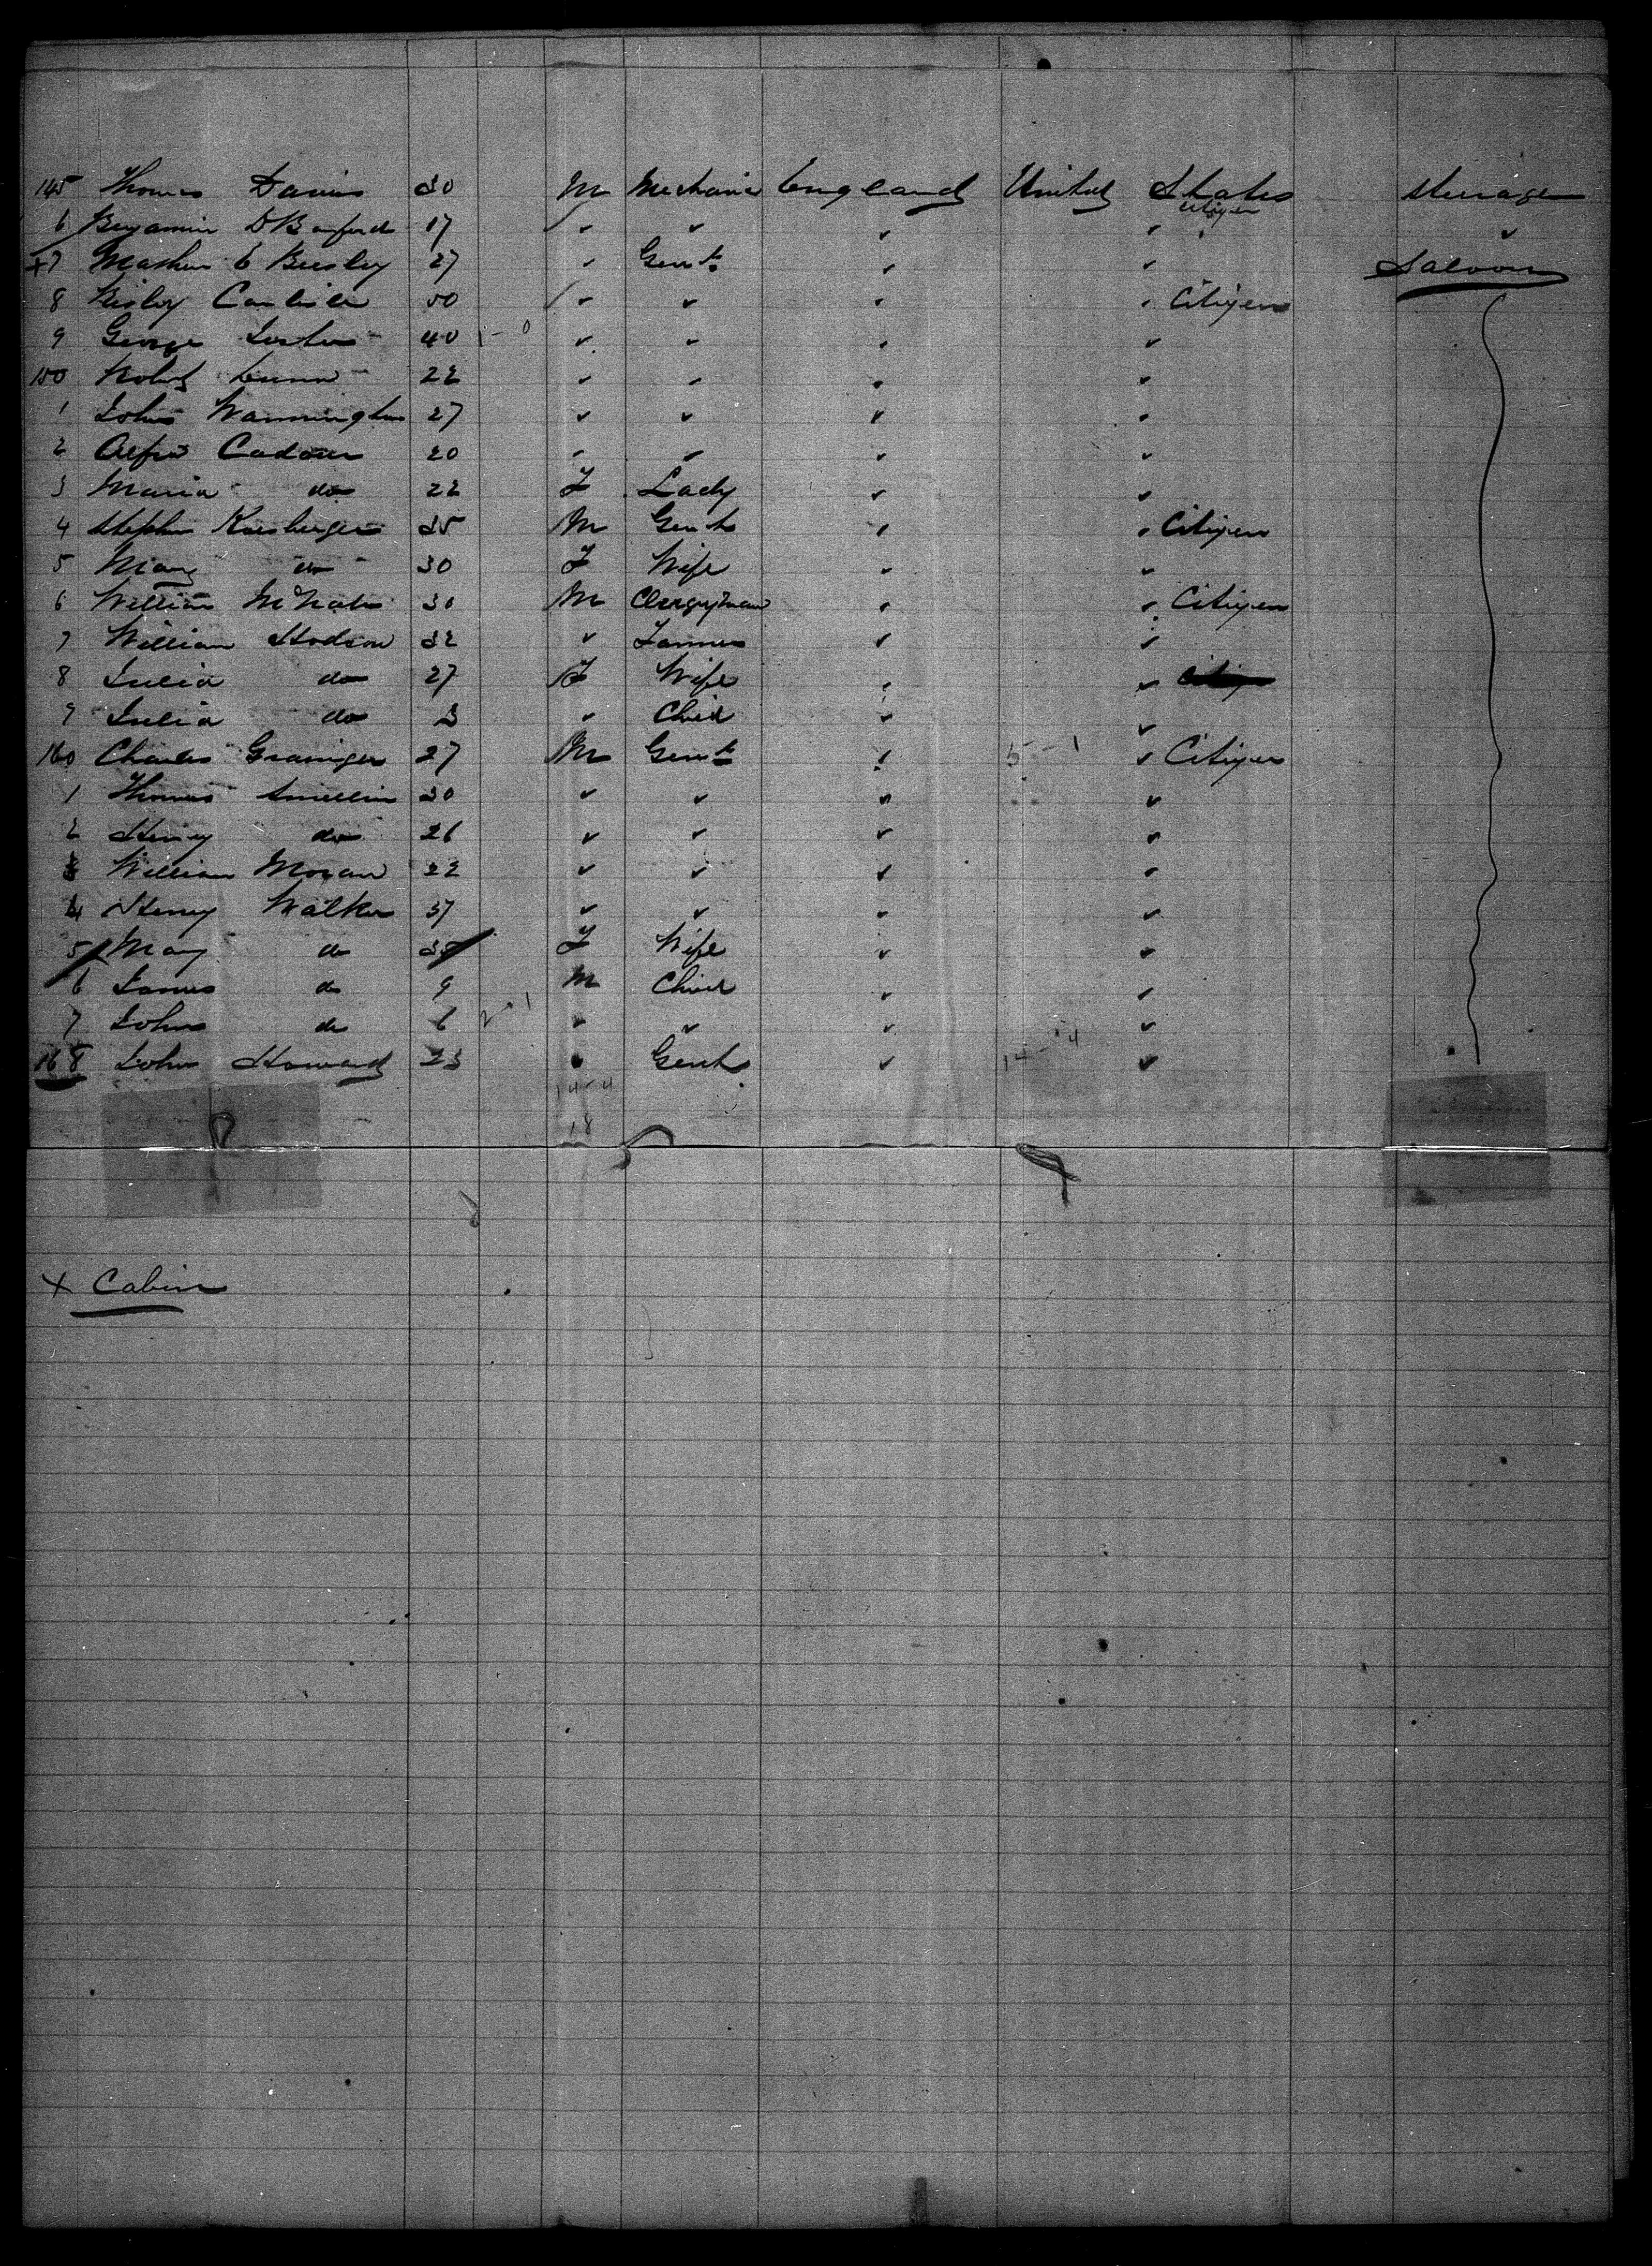 145 Thomas Davies 30 M Mechanic England United States Steerage
6 Benjamin D 17 ✓ ✓ ✓ ✓ Citizen ✓
+7 C Beesley 27 ✓ Gent ✓ ✓ Saloon
8 Carlisle 50 ✓ ✓ ✓ ✓ Citizen
9 George 40 ✓ ✓ ✓ ✓ 1-0
150 22 ✓ ✓ ✓ ✓
1 John Warmington 27 ✓ ✓ ✓ ✓
2 Alfred 20 ✓ ✓ ✓ ✓
3 Maria do 22 F Lady ✓ ✓
4 Stephen 35 M Gent ✓ ✓ Citizen
5 Mary do 30 F Wife ✓ ✓
6 William 30 M Clergyman ✓ ✓ Citizen
7 William Hodson 32 ✓ Farmer ✓ ✓
8 Julia do 27 F Wife ✓ ✓
9 Julia do 3 ✓ Child ✓ ✓
160 Charles Grainger 27 M Gent ✓ 5-1 ✓ Citizen
1 Thomas 30 ✓ ✓ ✓ ✓
2 Henry do 26 ✓ ✓ ✓ ✓
3 William Moran 22 ✓ ✓ ✓ ✓
4 Henry Walker 37 ✓ ✓ ✓ ✓
5 Mary do 35 F Wife ✓ ✓
6 James do 9 M Child ✓ ✓
7 John do 6 2-1 ✓ ✓ ✓ ✓
168 John Howard 23 ✓ Gent ✓ 14-4 ✓
14-4
18
+ Cabin